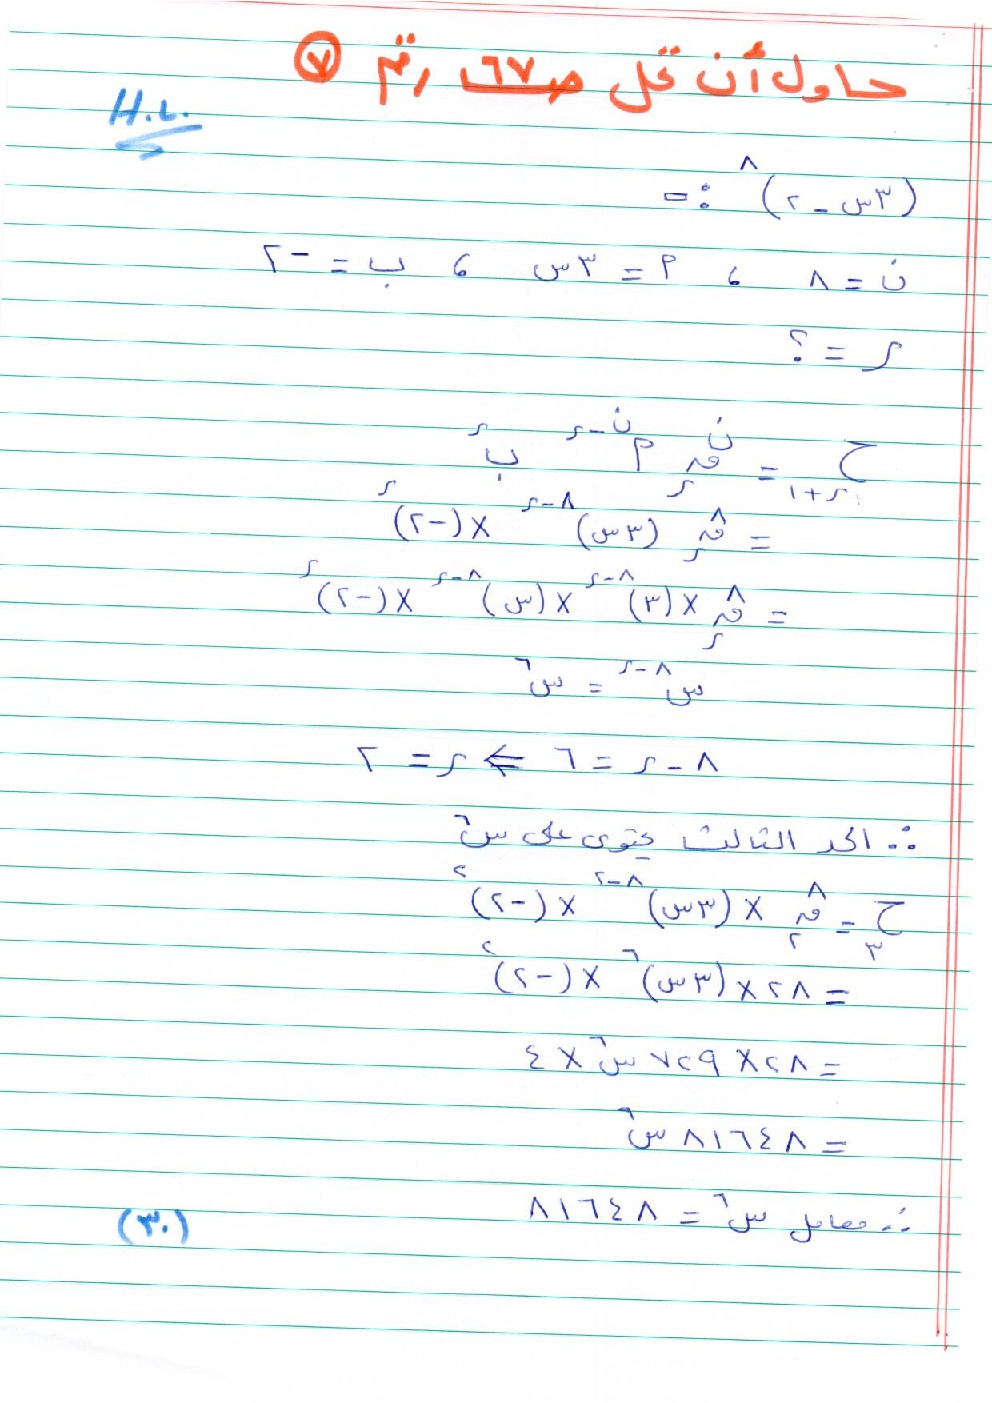 حاول أن تحل ص ٦٧ رقم ٧
H.L.
(٣س - ٢)^٨ :-
ن = ٨ ، م = ٣س ، ب = -٢
ر = ؟
ح_(ر+١) = ن ق ر م^(ن-ر) ب^ر
= ٨ ق ر (٣س)^(٨-ر) × (-٢)^ر
= ٨ ق ر × (٣)^(٨-ر) × (س)^(٨-ر) × (-٢)^ر
س^(٨-ر) = س^٦
٨ - ر = ٦ ⇐ ر = ٢
∴ الحد الثالث يحتوى على س^٦
ح_٣ = ٨ ق ٢ × (٣س)^(٨-٢) × (-٢)^٢
= ٢٨ × (٣س)^٦ × (-٢)^٢
= ٢٨ × ٧٢٩ س^٦ × ٤
= ٨١٦٤٨ س^٦
∴ معامل س^٦ = ٨١٦٤٨
(٣٠)